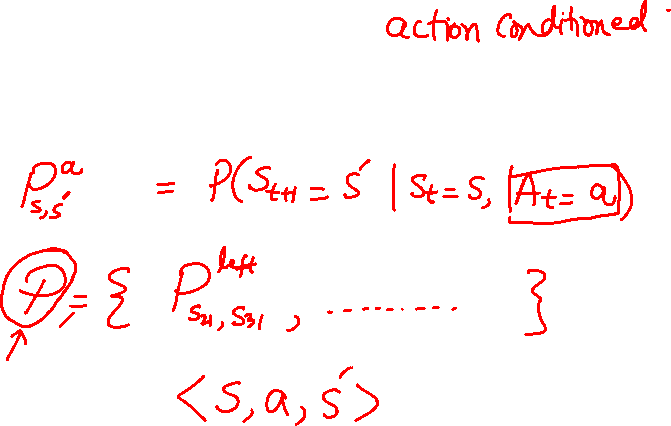 action conditioned
P^a_{s,s'} = P(S_{t+1} = s' | S_t = s, A_t = a)
P = { P^{left}_{s_{21}, s_{31}}, ......... }
<s, a, s'>